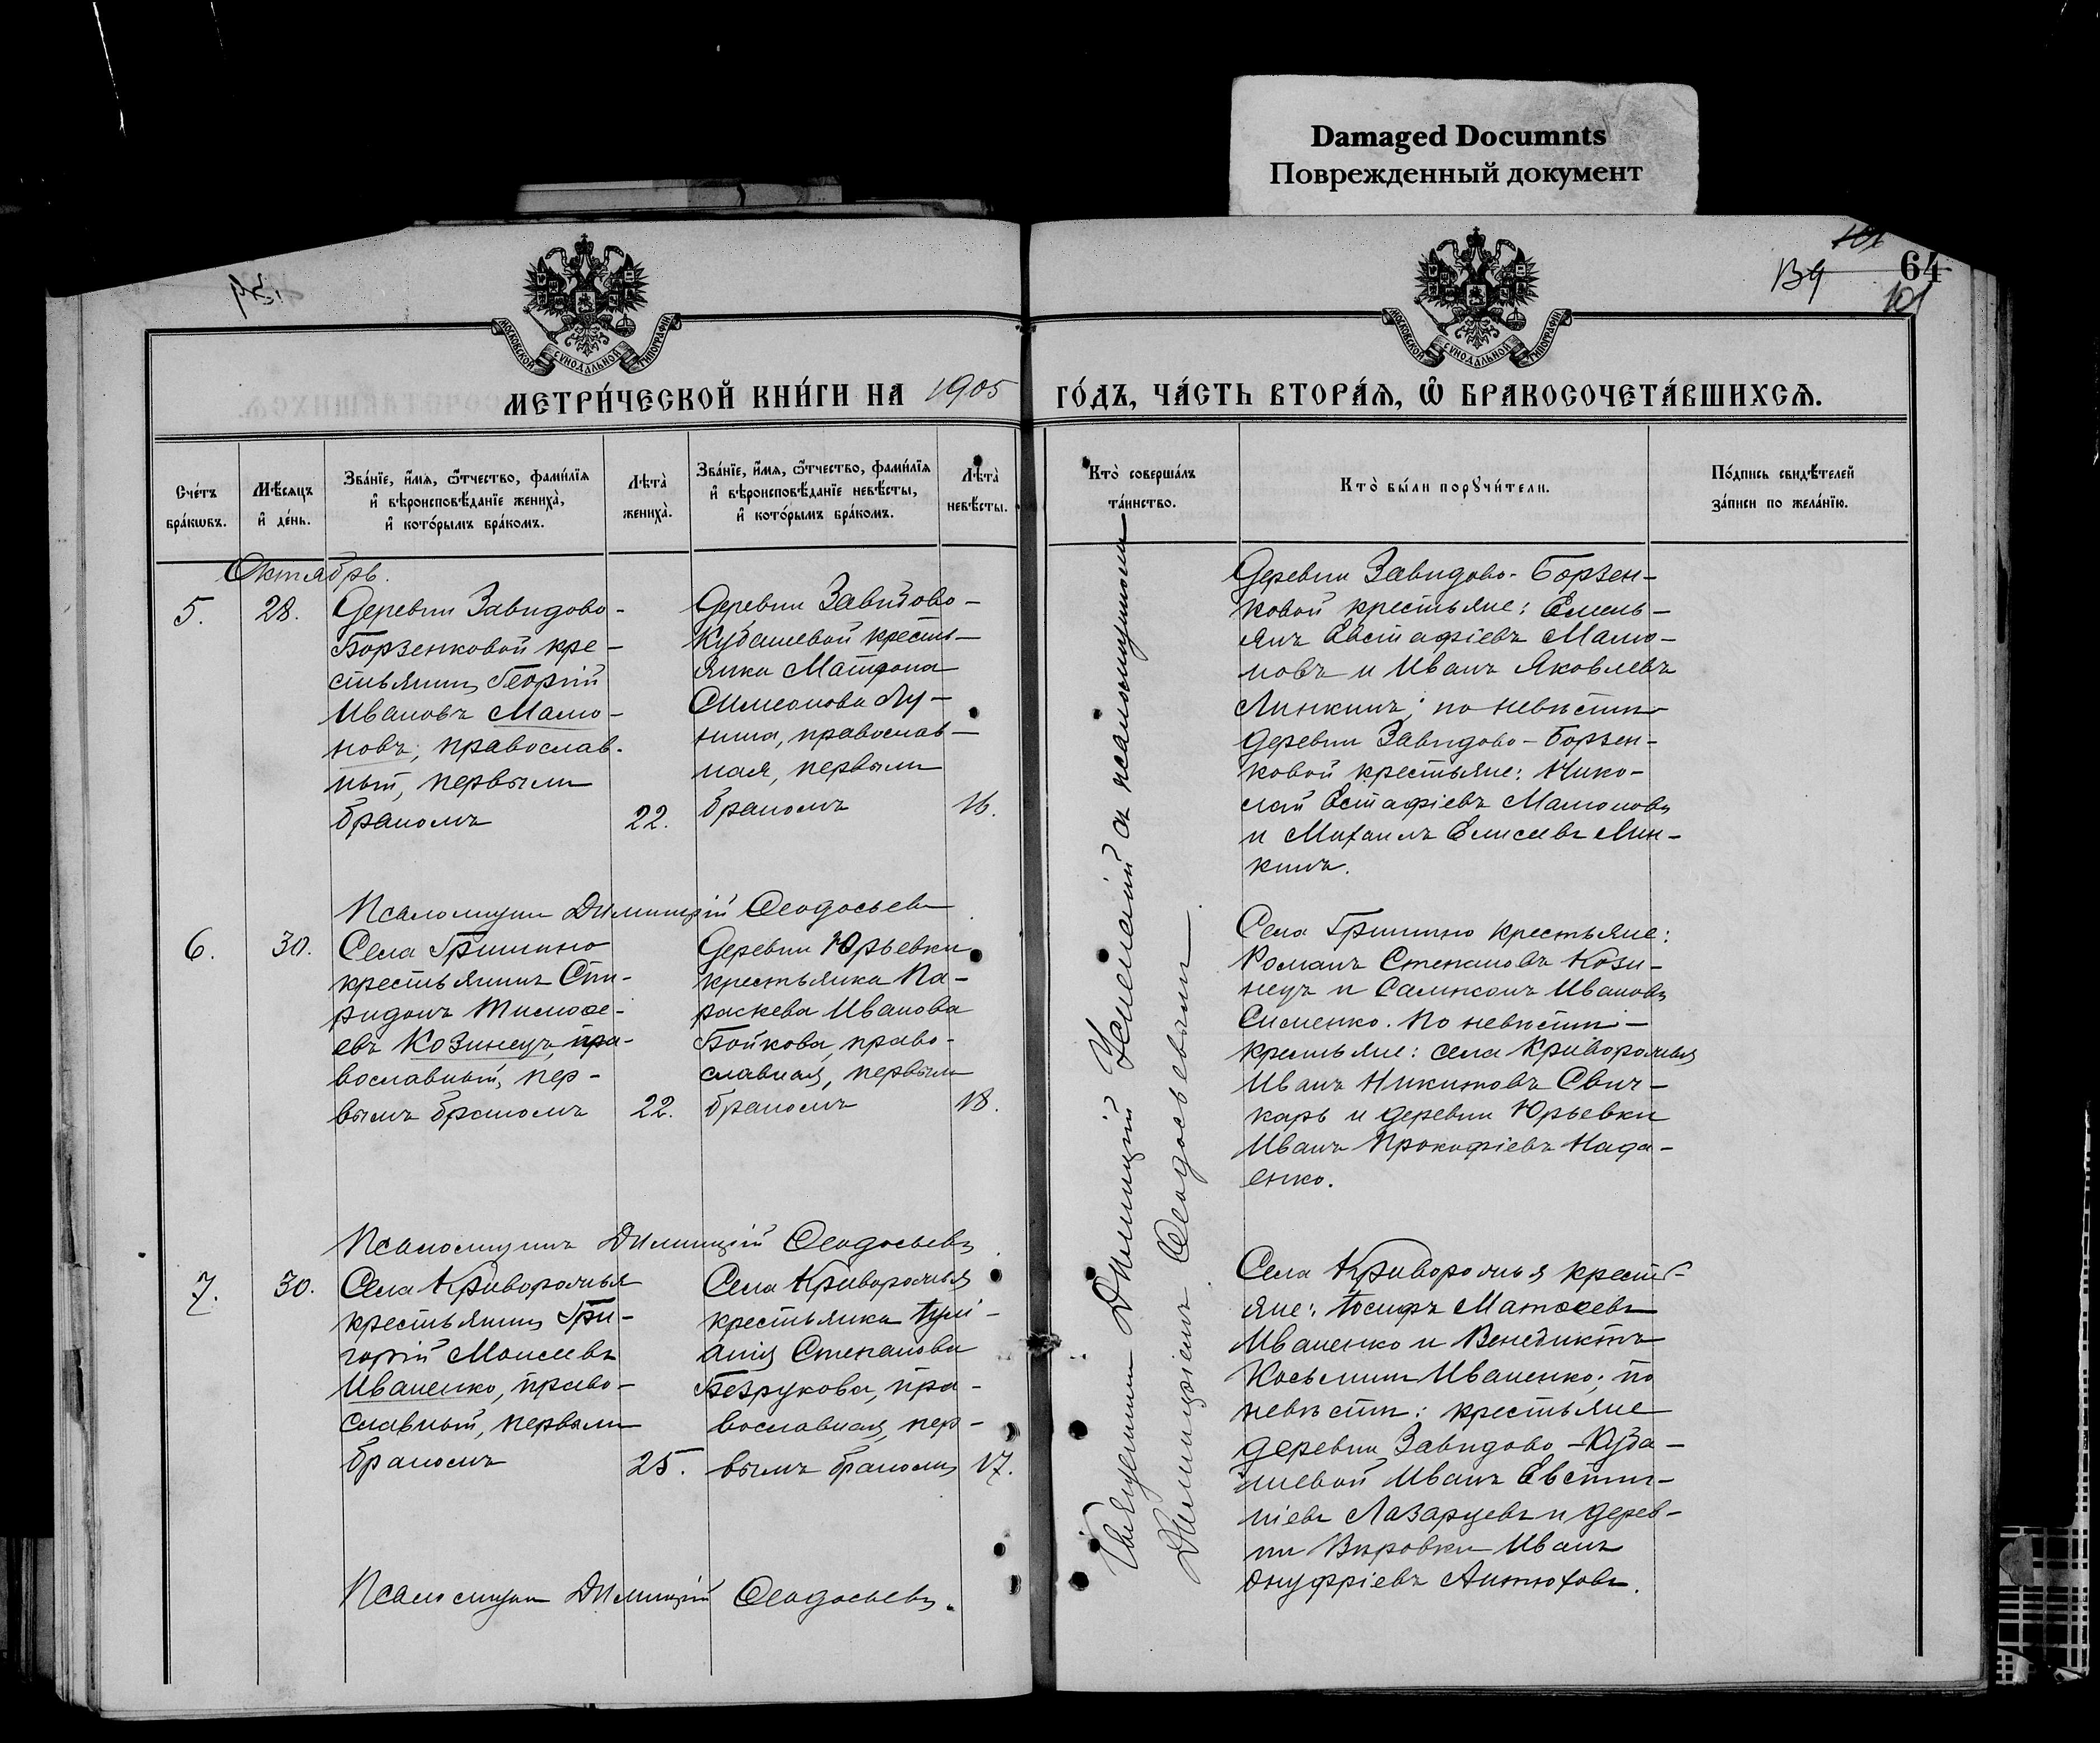 Damaged Documnts
Поврежденный документ
64
101
139
МОСКОВСКОЙ СУНОДАЛЬНОЙ ТИПОГРАФІИ
МОСКОВСКОЙ СУНОДАЛЬНОЙ ТИПОГРАФІИ
МЕТРИ́ЧЕСКОЙ КНИ́ГИ НА 1905 ГО́ДЪ, ЧА́СТЬ ВТОРА́Ѧ, Ѽ БРАКОСОЧЕТА́ВШИХСѦ.
Сче́тъ
бра́кѡвъ.
Мѣ́сяцъ
и҆ де́нь.
Зва́нїе, и҆́мѧ, ѻ҆́тчество, фами́лїѧ
и҆ вѣроисповѣ́данїе жениха̀,
и҆ кото́рымъ бра́комъ.
Лѣта̀
жениха̀.
Зва́нїе, и҆́мѧ, ѻ҆́тчество, фами́лїѧ
и҆ вѣроисповѣ́данїе невѣ́сты,
и҆ кото́рымъ бра́комъ.
Лѣта̀
невѣ́сты.
Кто̀ соверша́лъ
та́инство.
Кто̀ бы́ли порꙋчи́тели.
По́дпись свидѣ́телей
за́писи по жела́нїю.
Октябрь.
5.
28.
Деревни Завидово-
Борзенковой кре-
стьянинъ Георгій
Ивановъ Мамо-
новъ, православ-
ный, первымъ
бракомъ
22.
Деревни Завидово-
Кудашевой кресть-
янка Матрона
Симеонова Лу-
нина, православ-
ная, первымъ
бракомъ
16.
Деревни Завидово-Борзен-
ковой крестьяне: Емель-
янъ Евстафіевъ Мамо-
новъ и Иванъ Яковлевъ
Линкинъ; по невѣсти
деревни Завидово-Борзен-
ковой крестьяне: Нико-
лай Естафіевъ Мамоновъ
и Михаилъ Елисеевъ Лин-
кинъ.
Псаломщикъ Димитрій Ѳеодосьевъ
6.
30.
Села Гришино
крестьянинъ Спи-
ридонъ Тимоѳе-
евъ Козинецъ, пра-
вославный, пер-
вымъ бракомъ
22.
Деревни Юрьевки
крестьянка Па-
раскева Иванова
Бойкова, право-
славная, первымъ
бракомъ
18.
Села Гришино крестьяне:
Романъ Степановъ Кози-
нецъ и Самсонъ Ивановъ
Сименко. По невѣсти-
крестьяне: села Криворожья
Иванъ Никитовъ Свич-
карь и деревни Юрьевки
Иванъ Прокофіевъ Нада-
енко.
Псаломщикъ Димитрій Ѳеодосьевъ
7.
30.
Села Криворожья
крестьянинъ Гри-
горій Моисеевъ
Иваненко, право-
славный, первымъ
бракомъ
25.
Села Криворожья
крестьянка Іулі-
анія Степанова
Безрукова, пра-
вославная, пер-
вымъ бракомъ
17.
Села Криворожья кресть-
яне: Іосифъ Матѳеевъ
Иваненко и Венедиктъ
Косьминъ Иваненко; по
невѣсти: крестьяне
деревни Завидово-Куда-
шевой Иванъ Евстиг-
ніевъ Лазарцевъ и дерев-
ни Вировки Иванъ
Онуфріевъ Антюховъ.
Псаломщикъ Димитрій Ѳеодосьевъ.
Священникъ Димитрій Успенскій съ псаломщикомъ
Димитріемъ Ѳеодосьевымъ.